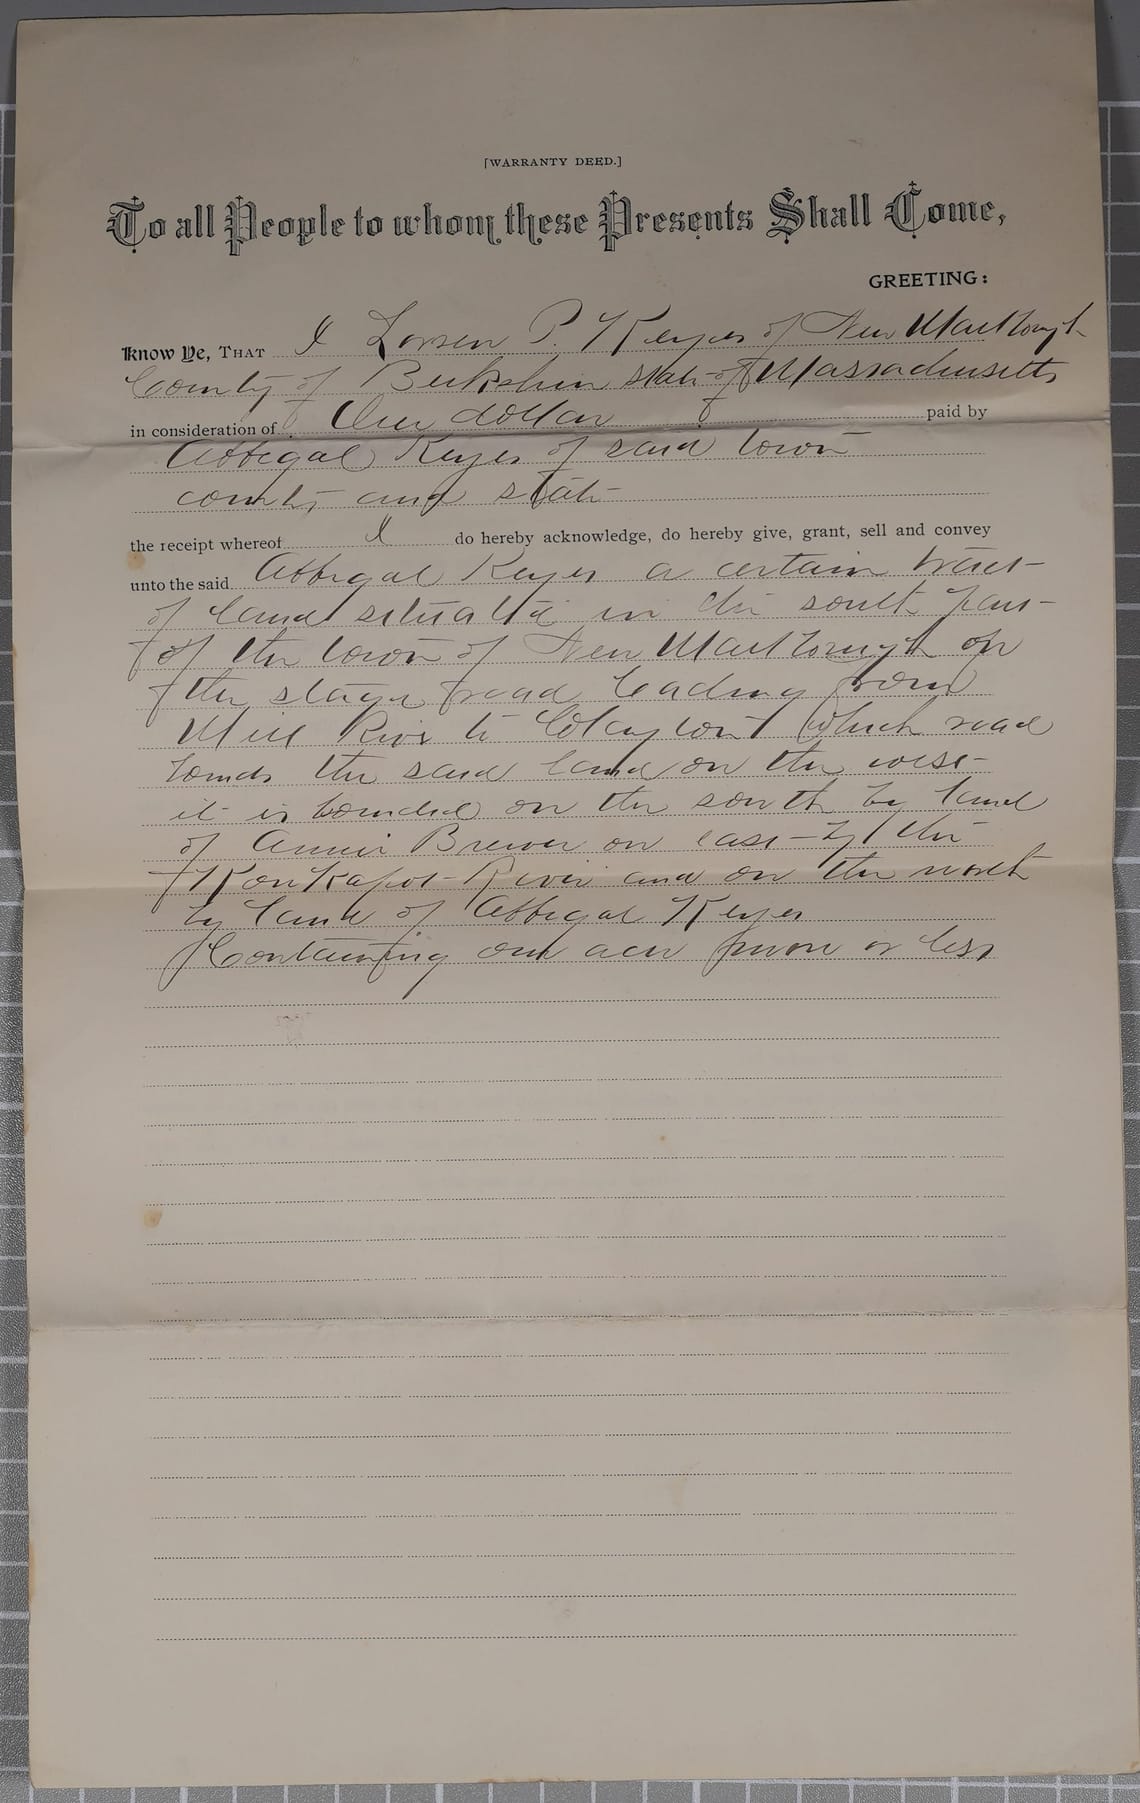 [WARRANTY DEED.]
To all People to whom these Presents Shall Come,
GREETING:
Know Ye, THAT I Lorsen P. Keyes of New Marlborough
County of Berkshire state of Massachusetts
in consideration of One dollar paid by
Abbegal Keyes of said town
county and state
the receipt whereof I do hereby acknowledge, do hereby give, grant, sell and convey
unto the said Abbegal Keyes a certain tract
of land situated in the south part
of the town of New Marlborough on
the stage road leading from
Mill River to Clayton which road
bounds the said land on the west
it is bounded on the south by land
of Annie Brewer on east by the
Konkapot River and on the north
by land of Abbegal Keyes
Containing one acre more or less